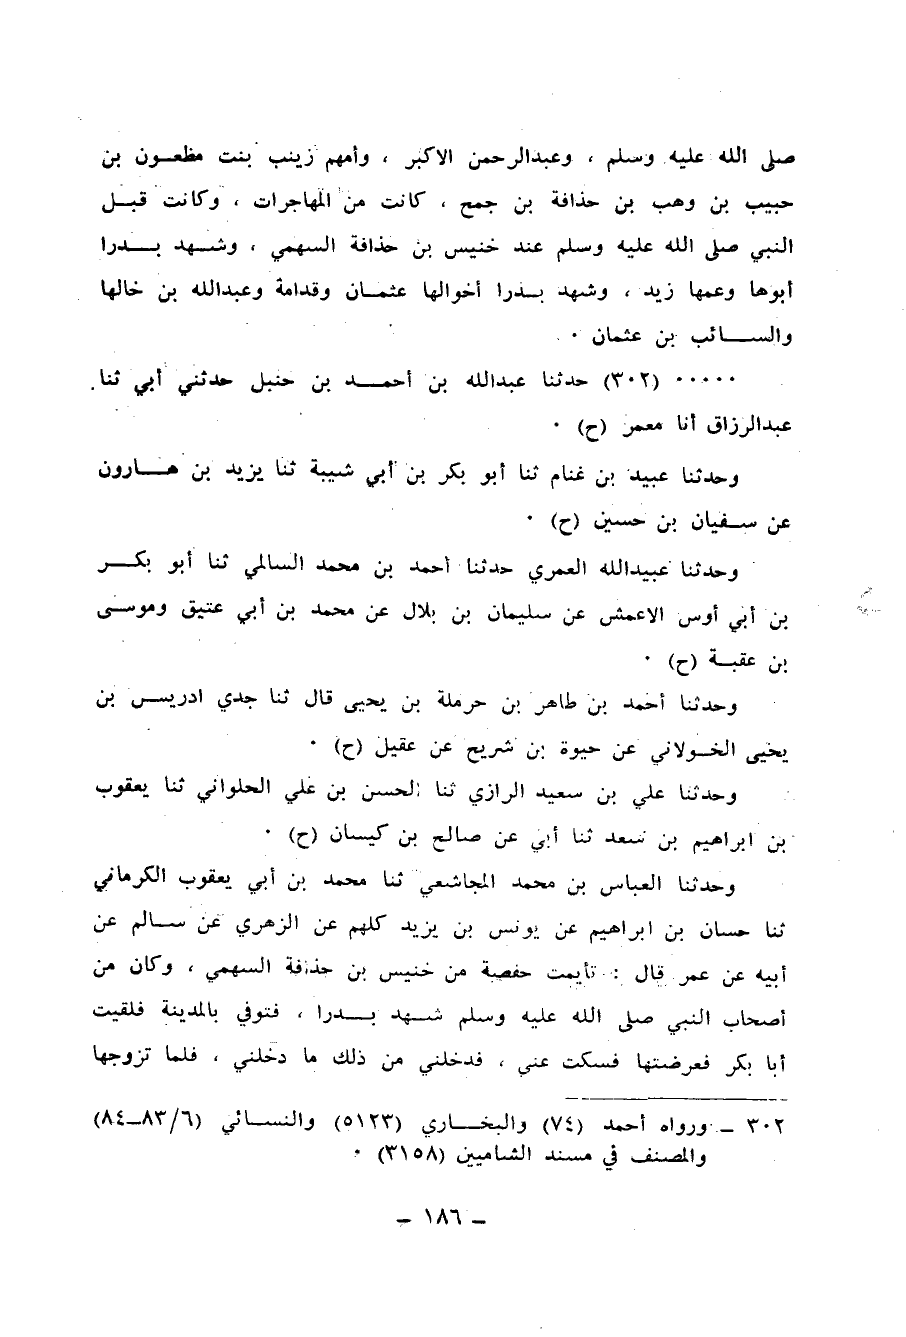 صلى الله عليه وسلم ، وعبدالرحمن الاكبر ، وأمهم زينب بنت مظعـون بن
حبيب بن وهب بن حذافة بن جمح ، كانت من المهاجرات ، وكانت قبـل
النبي صلى الله عليه وسلم عند خنيس بن حذافة السهمي ، وشـهد بـدرا
أبوها وعمها زيد ، وشهد بـدرا أخوالها عثمـان وقدامة وعبدالله بن خالها
والسـائب بن عثمان ٠
٠٠٠٠٠ (٣٠٢) حدثنا عبدالله بن أحمـد بن حنبل حدثني أبي ثنا
عبدالرزاق أنا معمر (ح) ٠
وحدثنا عبيد بن غنام ثنا أبو بكر بن أبي شيبة ثنا يزيد بن هـارون
عن سـفيان بن حسين (ح) ٠
وحدثنا عبيدالله العمري حدثنا أحمد بن محمد السالمي ثنا أبو بكـر
بن أبي أوس الاعمش عن سليمان بن بلال عن محمد بن أبي عتيق وموسى
بن عقبـة (ح) ٠
وحدثنا أحمد بن طاهر بن حرملة بن يحيى قال ثنا جدي ادريس بن
يحيى الخـولاني عن حيوة بن شريح عن عقيل (ح) ٠
وحدثنا علي بن سعيد الرازي ثنا الحسن بن علي الحلواني ثنا يعقوب
بن ابراهيم بن سعد ثنا أبي عن صالح بن كيسان (ح) ٠
وحدثنا العباس بن محمد المجاشعي ثنا محمد بن أبي يعقوب الكرماني
ثنا حسان بن ابراهيم عن يونس بن يزيد كلهم عن الزهري عن سـالم عن
أبيه عن عمر قال : تأيمت حفصة من خنيس بن حذافة السهمي ، وكان من
أصحاب النبي صلى الله عليه وسلم شـهد بـدرا ، فتوفي بالمدينة فلقيت
أبا بكر فعرضتها فسكت عني ، فدخلني من ذلك ما دخلني ، فلما تزوجها
٣٠٢ ــ ورواه أحمد (٧٤) والبخـاري (٥١٢٣) والنسـائي (٦/٨٣ــ٨٤)
والمصنف في مسند الشاميين (٣١٥٨) ٠
ــ ١٨٦ ــ